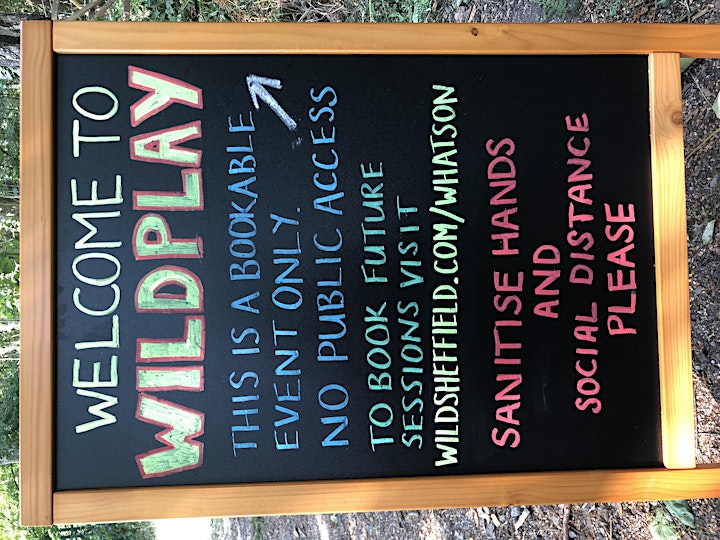 WELCOME TO
WILDPLAY
THIS IS A BOOKABLE
EVENT ONLY.
NO PUBLIC ACCESS
TO BOOK FUTURE
SESSIONS VISIT
WILDSHEFFIELD.COM/WHATSON
SANITISE HANDS
AND
SOCIAL DISTANCE
PLEASE